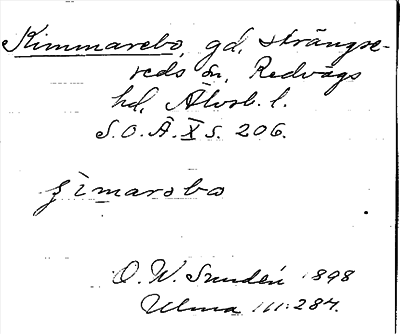 Kimmarebo, gd, Strängse-
reds sn, Redvägs
hd, Älvsb. l.
S.O.Ä. X s. 206.
ʃimarəbo
O. W. Sundén 1898
Ulma 111:287.